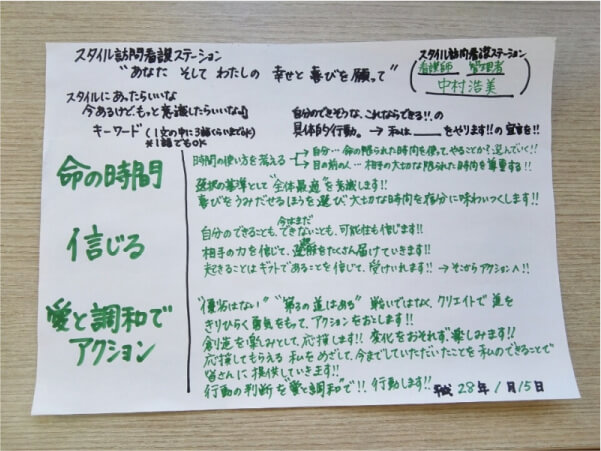 スタイル訪問看護ステーション
"あなた そして わたしの 幸せと喜びを願って"
スタイル訪問看護ステーション
看護師 管理者
中村浩美
スタイルにあったらいいな
今あるけど、もっと意識したらいいな♪
キーワード(1文の中に3語ぐらいまでOK)
*1語でもOK
自分のできそうな、これならできる!!の
具体的行動。→ 私は、____をやります!!の宣言を!!
命の時間
時間の使い方を考える
自分…命の限られた時間を使ってやることか?選んでいく!!
目の前の人…相手の大切な限られた時間を尊重する!!
選択の基準として"全体最適"を意識します!!
喜びをうみだせるほうを選び大切な時間を存分に味わいつくします!!
信じる
今はまだ
自分のできることも、できないことも、可能性も信じます!!
相手の力を信じて、愛をたくさん届けていきます!!
起きることはギフトであることを信じて、受けいれます!! → そこからアクションへ!!
愛と調和で
アクション
"優劣はない" "第3の道はある" 戦いではなく、クリエイトで 道を
きりひらく勇気をもって、アクションをおこします!!
創造を楽しみとして、応援します!! 変化をおそれず"楽しみます!!
応援してもらえる 私をめざして、今までしていただいたことを 私のできることで
皆さんに 提供していきます!!
行動の判断を"愛と調和"で!! 行動します!!
平成 28年 1月 15日